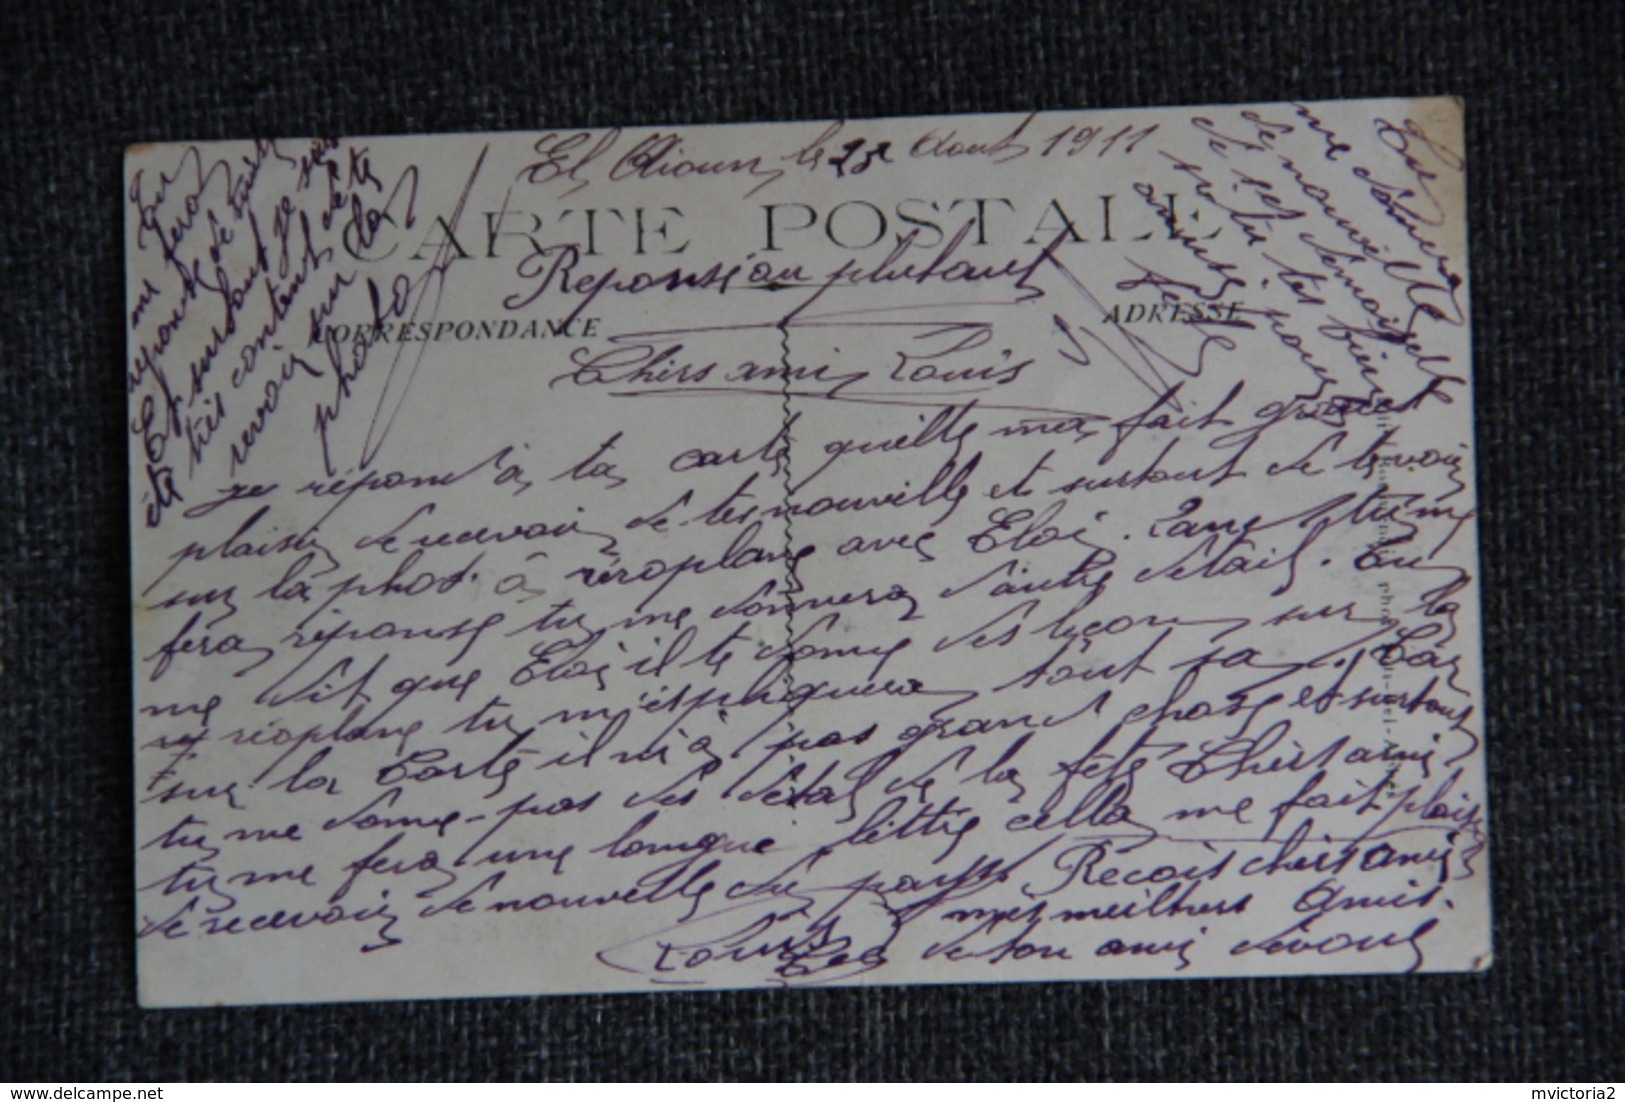 El Aioun, le 25 Aout 1911
CARTE POSTALE
Reponse au plutaut
CORRESPONDANCE
ADRESSE
Chers ami Louis
je répond à ta carte quelle ma fait grand
plaisir de recevoir de tes nouvelle et surtout de te voir
sur la phot. à réroplane avec Eloi. Dans tu me
fera réponse tu me donnera d'autre détail. Tu
me dit que Eloi il te donne des leçons sur la
réroplane tu m'espliquera tout sa. Car
sur la Carte il n'i à pas grand chose et surtout
tu me donne pas des détal de la fête Chers ami
tu me fera une longue lettre cella me fait plaisir
de recevoir de nouvelle du pays. Recois chers ami
mes meilleurs Amis.
Louis de ton ami dévoué
Tu
me fera
réponse de suite
Et surtout je suis
été très content de te
revoir sur la
photo
Tu
me donnera
de nouvelle
de tes démoiselle
si tu tes bien
amusé pour
fête
mvictoria2